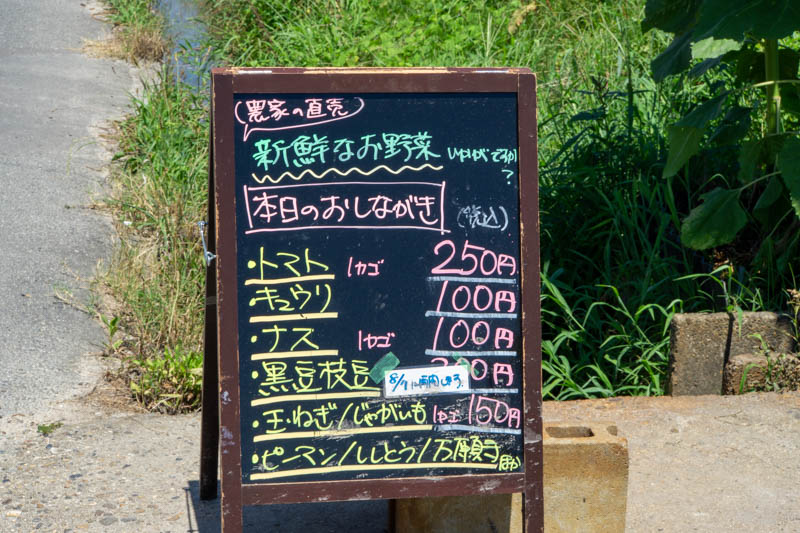 農家の直売
新鮮なお野菜 いかがですか?
本日のおしながき (税込)
・トマト 1カゴ 250円
・キュウリ 100円
・ナス 1カゴ 100円
・黒豆枝豆 円
・玉ねぎ/じゃがいも 1カゴ 150円
・ピーマン/ししとう/万願寺 ほか